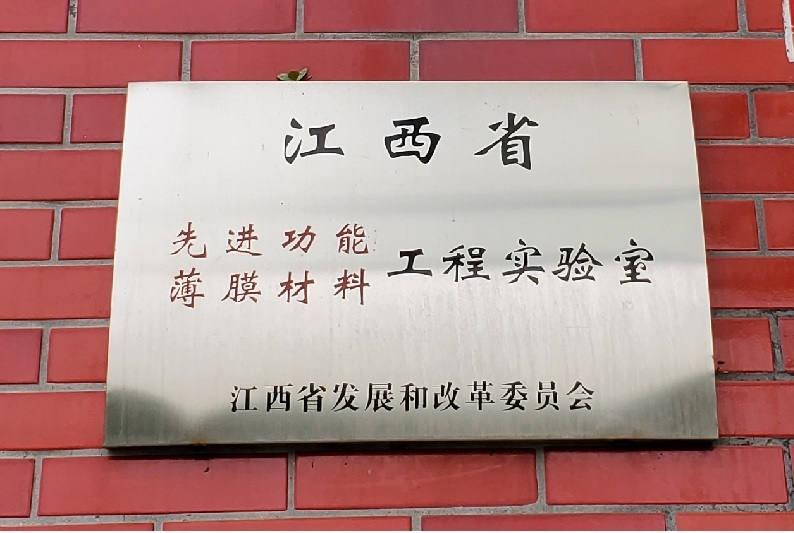 江西省
先进功能
薄膜材料
工程实验室
江西省发展和改革委员会